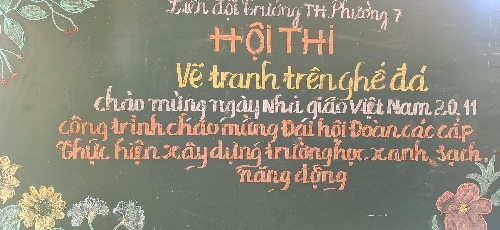 Liên đội Trường TH Phường 7
HỘI THI
Vẽ tranh trên ghế đá
chào mừng ngày Nhà giáo Việt Nam 20.11
công trình chào mừng Đại hội Đoàn các cấp
Thực hiện xây dựng trường học xanh, sạch,
năng động